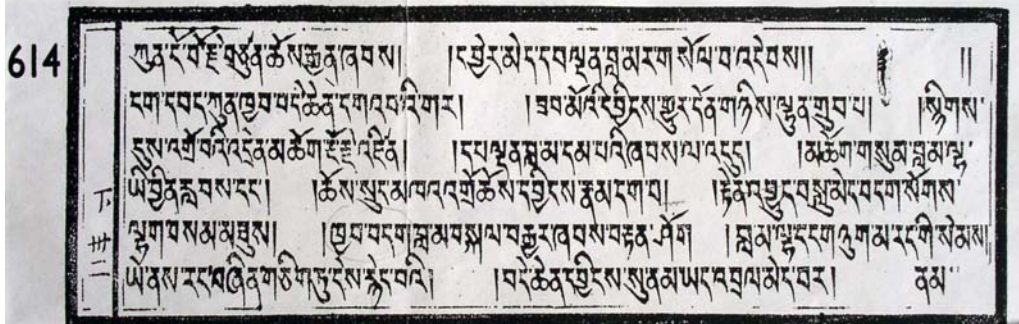 614
ཀུན་ངོ་བོ་རྗེ་བཙུན་ཆོས་རྒྱན་ཞབས།། །དབྱེར་མེད་དཔལ་ལྡན་བླ་མར་གསོལ་བ་འདེབས།། །།
ངག་དབང་ཀུན་ཁྱབ་བདེ་ཆེན་དགའ་བའི་གར། །ཟབ་མོའི་དབྱིངས་སྒྱུར་དོན་གཉིས་ལྷུན་གྲུབ་པ། །སྙིགས་
དུས་འགྲོ་བའི་འདྲེན་མཆོག་རྡོ་རྗེ་འཛིན། །དཔལ་ལྡན་བླ་མ་དམ་པའི་ཞབས་ལ་འདུད། །མཆོག་གསུམ་བླ་མ་ལྷ་
ཡི་བྱིན་རླབས་དང་། །ཆོས་སྲུང་མཁའ་འགྲོ་ཆོས་དབྱིངས་རྣམ་དག་པ། །རྟེན་འབྱུང་བསླུ་མེད་བདག་སོགས་
ལྷག་བསམ་མཐུས། །ཁྱབ་བདག་བླ་མ་བསྐལ་བརྒྱར་ཞབས་བརྟན་ཤོག །བླ་མ་ལྷ་དང་གཉུག་མ་རང་གི་སེམས།
ཡེ་ནས་རང་བཞིན་གཅིག་ཏུ་ངེས་རྙེད་པའི། །བདེ་ཆེན་དབྱིངས་སུ་ནམ་ཡང་འབྲལ་མེད་པར། ནམ་
下 廿二